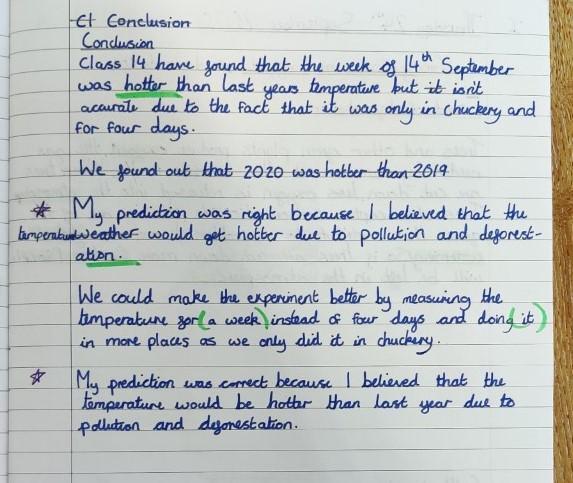 Ct Conclusion
Conclusion
Class 14 have found that the week of 14th September
was hotter than last years temperature but it isn't
accurate due to the fact that it was only in chuckery and
for four days.
We found out that 2020 was hotter than 2019
☆ My prediction was right because I believed that the
temperature weather would get hotter due to pollution and deforest-
ation.
We could make the experiment better by measuring the
temperature for (a week) instead of four days and doing it)
in more places as we only did it in chuckery.
☆ My prediction was correct because I believed that the
temperature would be hotter than last year due to
pollution and deforestation.